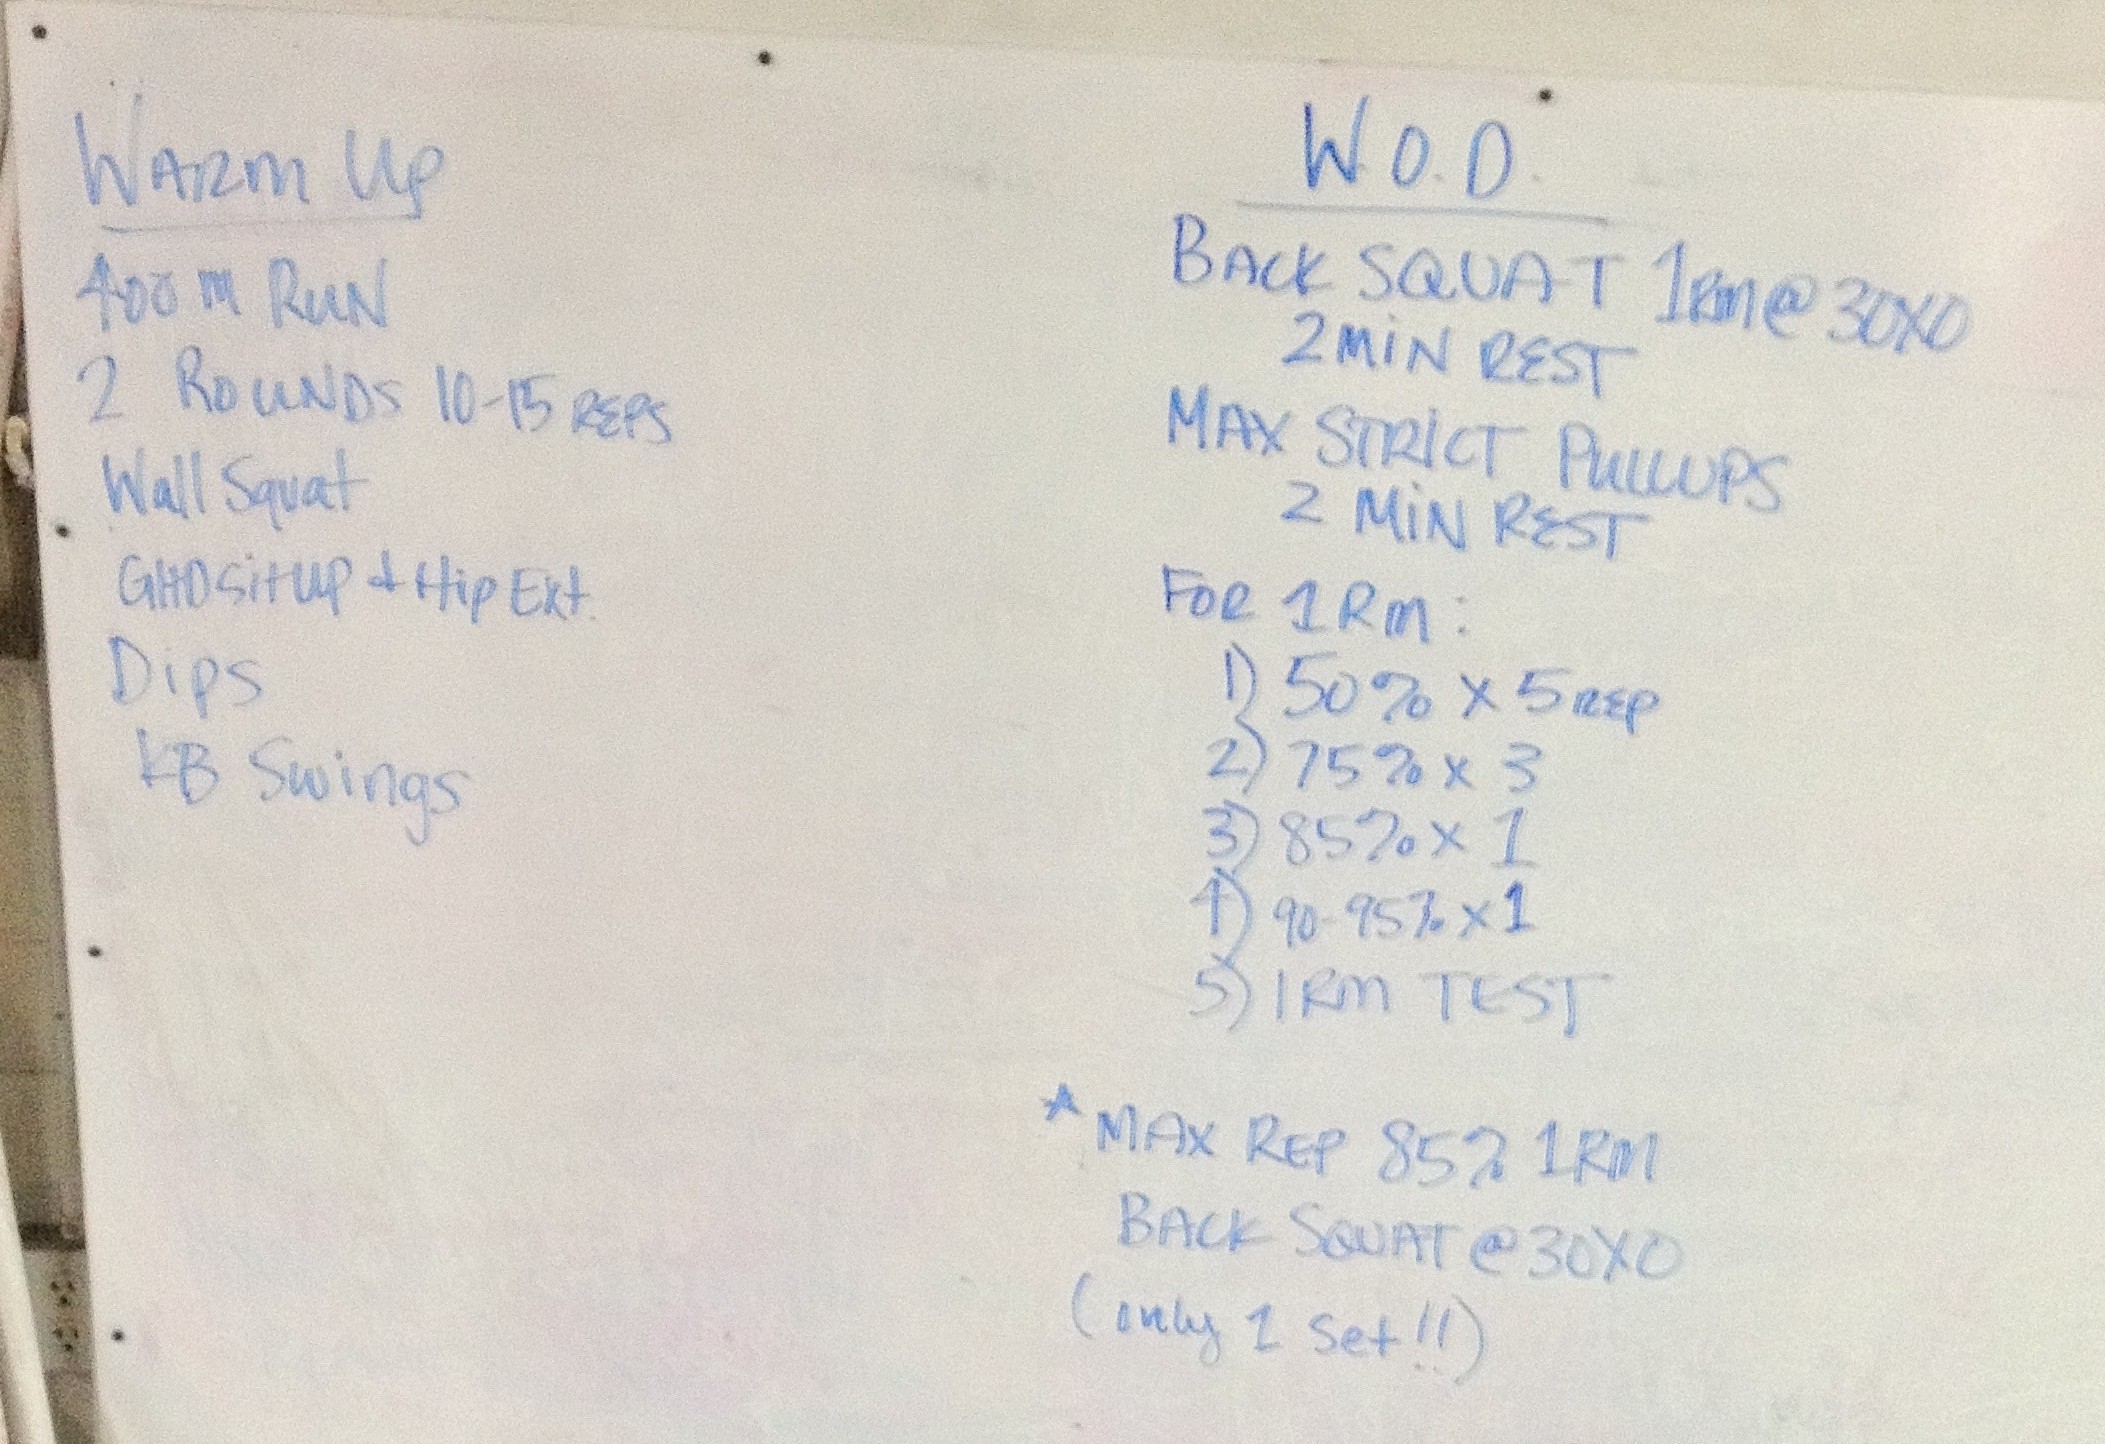 WARM UP
400 m RUN
2 ROUNDS 10-15 REPS
Wall Squat
GHD Sit up + Hip Ext.
Dips
KB Swings
W.O.D.
BACK SQUAT 1RM @ 30X0
2 MIN REST
MAX STRICT PULLUPS
2 MIN REST
FOR 1RM:
1) 50% x 5 REP
2) 75% x 3
3) 85% x 1
4) 90-95% x 1
5) 1RM TEST
* MAX REP 85% 1RM
BACK SQUAT @ 30X0
(only 1 set!!)